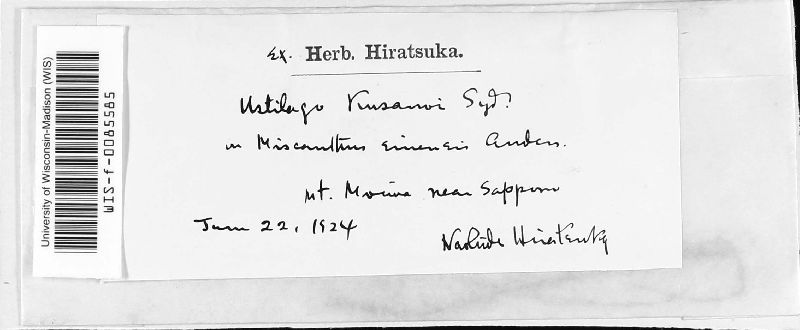 University of Wisconsin-Madison (WIS)
WIS-f-0085585
Ex. Herb. Hiratsuka.
Ustilago Kusanoi Syd.
on Miscanthus sinensis Anders.
Mt. Moiwa near Sapporo
June 22, 1924
Naohide Hiratsuka